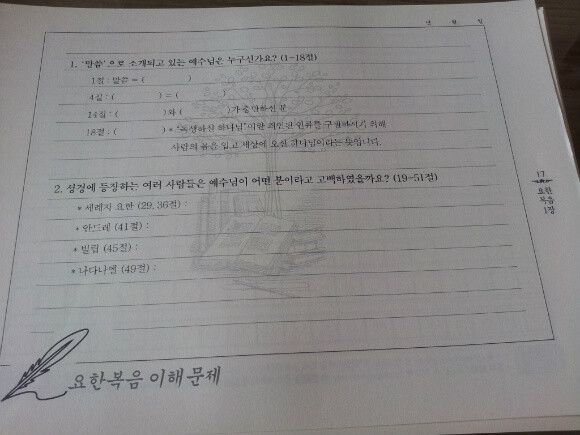 년 월 일
1. '말씀'으로 소개되고 있는 예수님은 누구신가요? (1-18절)
1절 : 말씀 = ( )
4절 : ( ) = ( )
14절 : ( )와 ( )가 충만하신 분
18절 : ( ) * "독생하신 하나님"이란 죄인된 인류를 구원하시기 위해
사람의 몸을 입고 세상에 오신 하나님이라는 뜻입니다.
2. 성경에 등장하는 여러 사람들은 예수님이 어떤 분이라고 고백하였을까요? (19-51절)
* 세례자 요한 (29, 36절) :
* 안드레 (41절) :
* 빌립 (45절) :
* 나다나엘 (49절) :
17
요한
복음
1장
요한복음 이해 문제